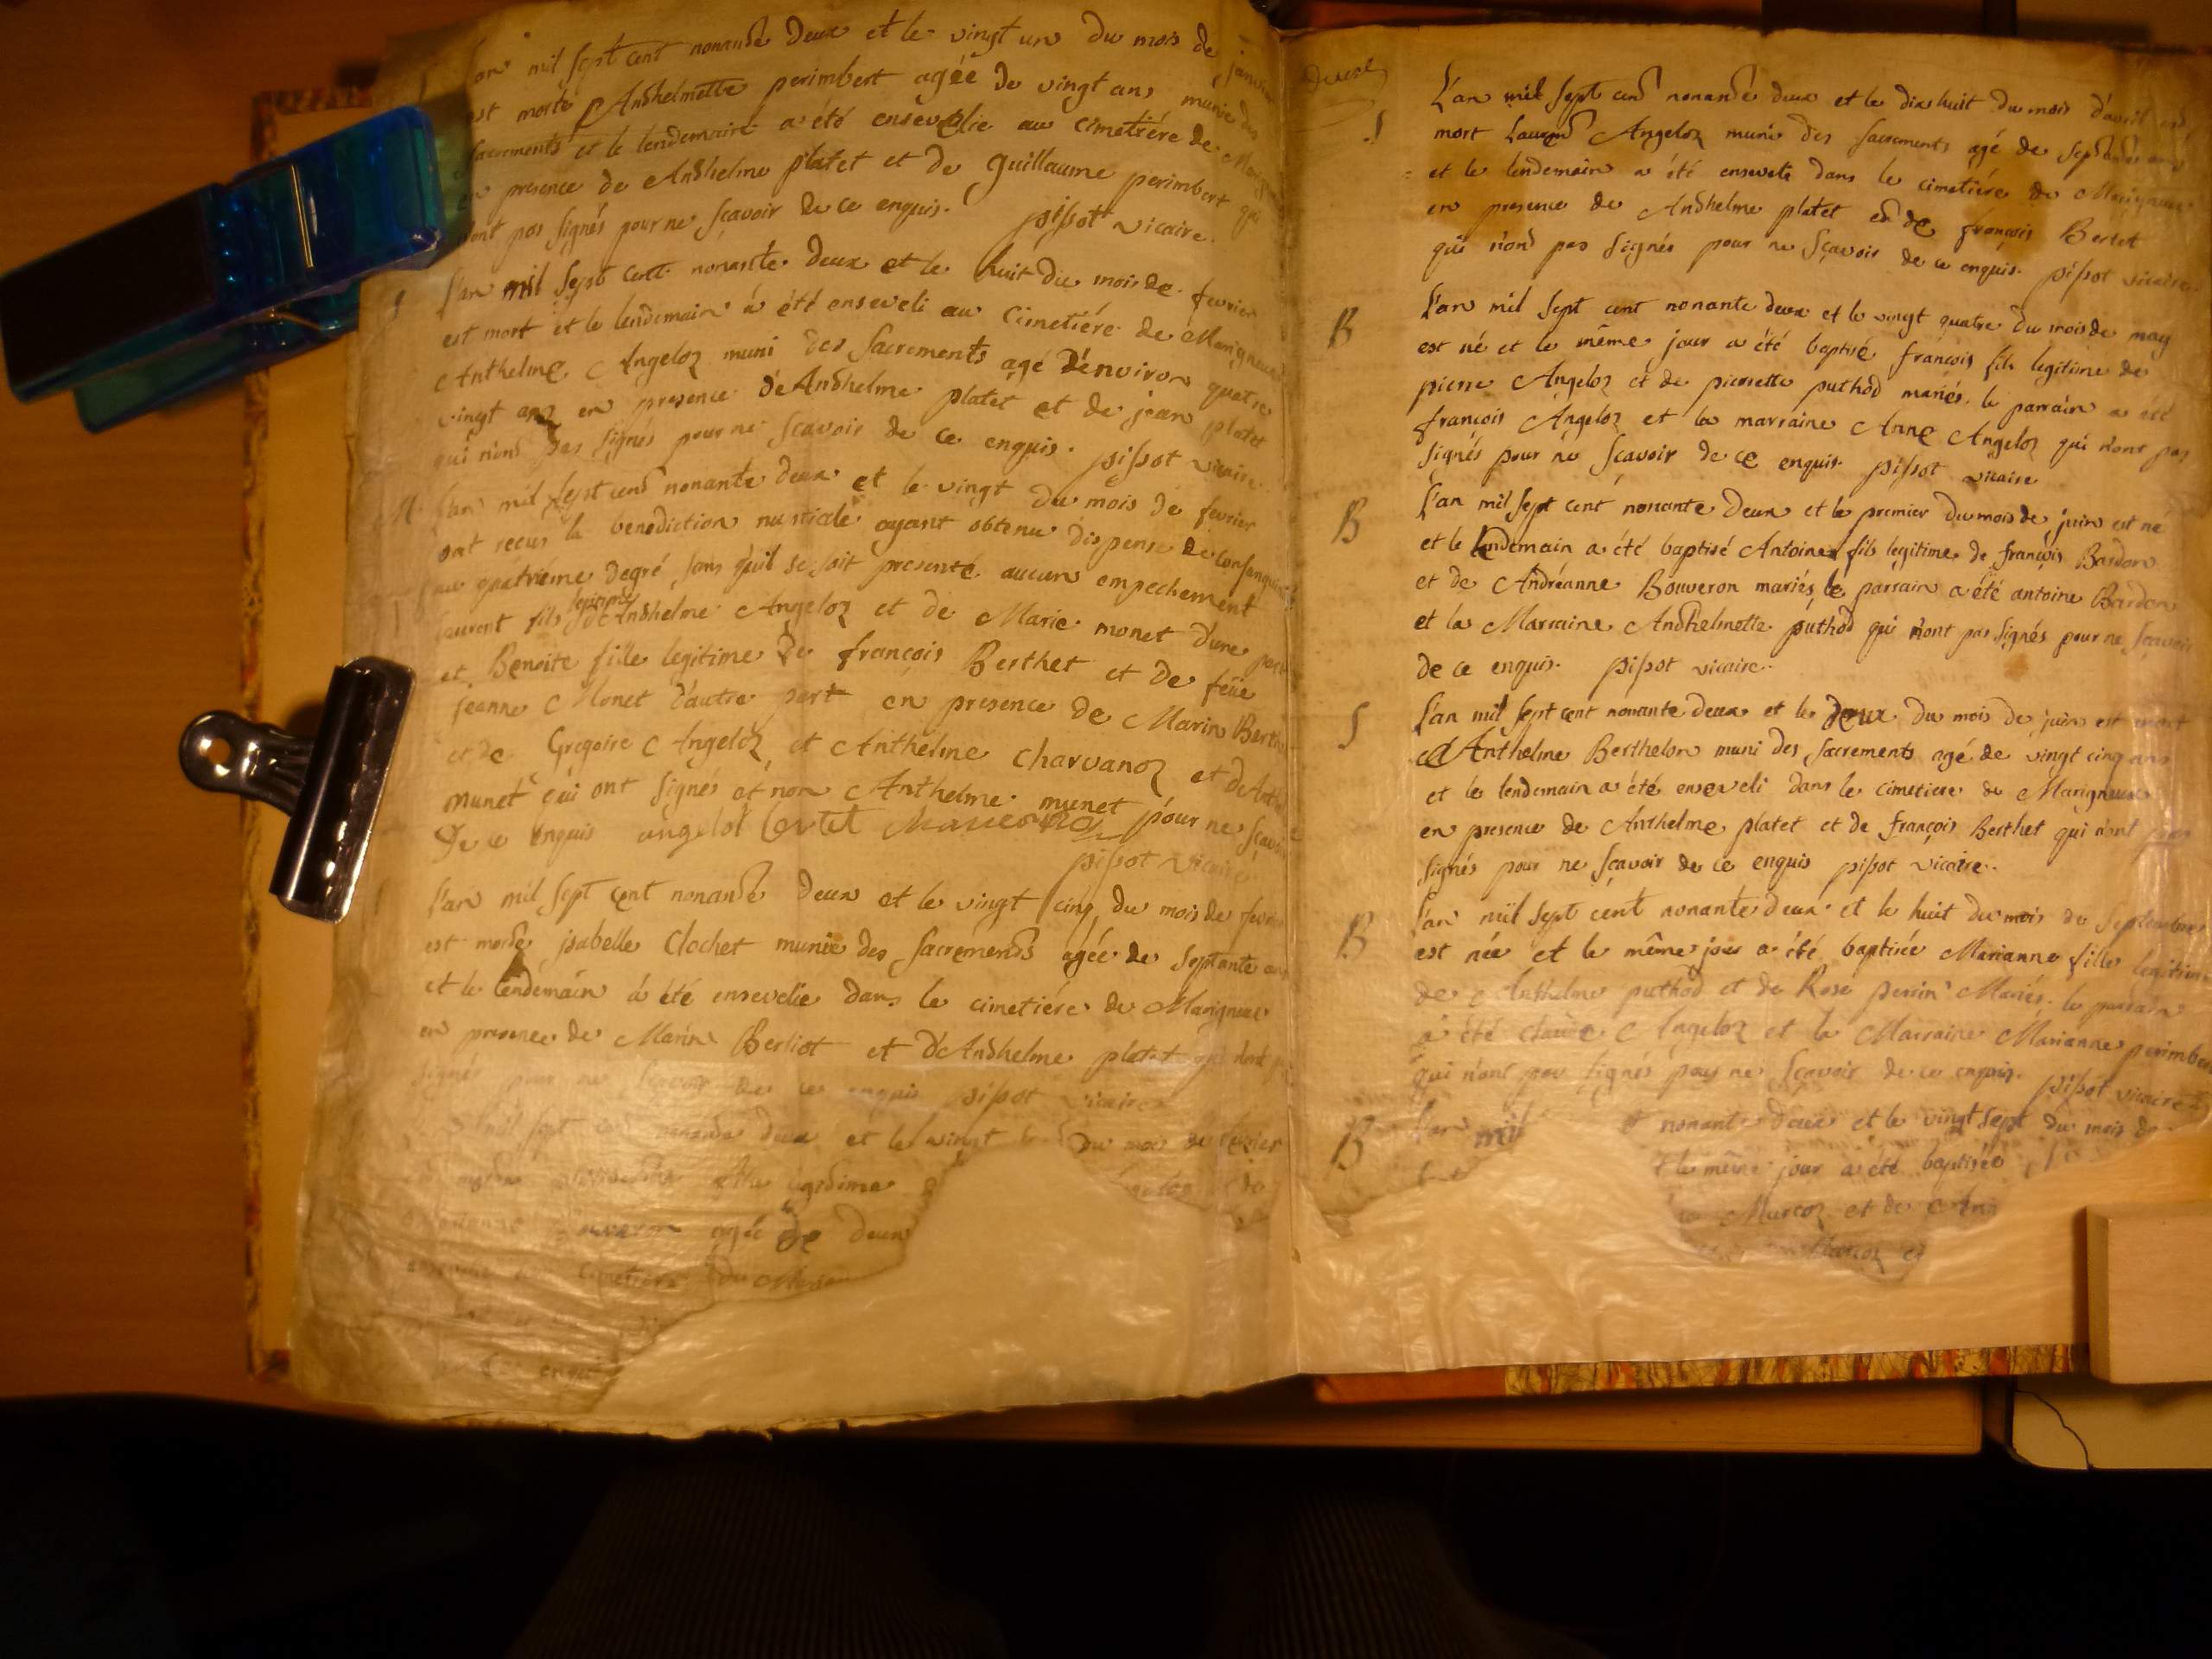 L'an mil sept cent nonante deux et le vingt un du mois de janvier
est morte Anthelmette perimbert agée de vingt ans munie des
sacrements et le lendemain a été ensevelie au cimetiére de
en presence de Anthelme platet et de guillaume perimbert qui
n'ont pas signés pour ne sçavoir de ce enquis. pissot vicaire.
S
L'an mil sept cent nonante deux et le huit du mois de fevrier
est mort et le lendemain a été enseveli au cimetiére de Marigneux
Anthelme Angeloz muni des sacrements agé d'environ quatre
vingt ans en presence de Anthelme platet et de jean platet
qui n'ont pas signés pour ne sçavoir de ce enquis. pissot vicaire
M
L'an mil sept cent nonante deux et le vingt du mois de fevrier
ont recus la benediction nuptiale ayant obtenu dispense de
au quatriéme degré sans qu'il se soit presenté aucun empechement
laurent fils legitime d'Anthelme Angeloz et de Marie monet d'une part
et Benoite fille legitime de françois Berthet et de feüe
jeanne Monet d'autre part en presence de Marin
et de Gregoire Angeloz et Anthelme charvanoz et
munet qui ont signés et non Anthelme munet pour ne sçavoir
De ce enquis angelot bertet
pissot vicaire
L'an mil sept cent nonante deux et le vingt cinq du mois de
est morte jsabelle Clochet munie des sacrements agée de septante ans
et le lendemain a été ensevelie dans le cimetiére de Marigneux
en presence de Marin Berliot et d'Anthelme platet qui n'ont
signés pour ne sçavoir de ce enquis pissot vicaire
mil sept cent nonante deux et le vingt du mois de
fille legitime
agée de deux
cimetiére de
enquis
L'an mil sept cent nonante deux et le dix huit du mois d'avril est
S
mort Laurent Angeloz muni des sacrements agé de septante ans
et le lendemain a été enseveli dans le cimetiére de Marigneux
en presence de Anthelme platet et de françois Bertet
qui n'ont pas signés pour ne sçavoir de ce enquis. pissot vicaire
B
L'an mil sept cent nonante deux et le vingt quatre du mois de may
est né et le même jour a été baptisé françois fils legitime de
pierre Angeloz et de pierrette puthod mariés. le parrain a été
françois Angeloz et la marraine Anne Angeloz qui n'ont pas
signés pour ne sçavoir de ce enquis. pissot vicaire
B
L'an mil sept cent nonante deux et le premier du mois de juin est né
et le lendemain a été baptisé Antoine fils legitime de françois Bardon
et de Andréanne Bouveron mariés, le parrain a été antoine Bardon
et la Marraine Anthelmette puthod qui n'ont pas signés pour ne sçavoir
de ce enquis. pissot vicaire.
S
L'an mil sept cent nonante deux et le deux du mois de juin est mort
Anthelme Berthelon muni des sacrements agé de vingt cinq ans
et le lendemain a été enseveli dans le cimetiere de Marigneux
en presence de Anthelme platet et de françois Berthet qui n'ont pas
signés pour ne sçavoir de ce enquis pissot vicaire.
B
L'an mil sept cent nonante deux et le huit du mois de septembre
est née et le même jour a été baptisée Marianne fille legitime
de Anthelme puthod et de Rose perrin Mariés. le parrain
a été Angeloz et la Marraine Marianne
qui n'ont pas signés pour ne sçavoir de ce enquis. pissot vicaire
B
L'an mil nonante deux et le vingt sept du mois de
le même jour a été baptisée
Marcoz et de
et